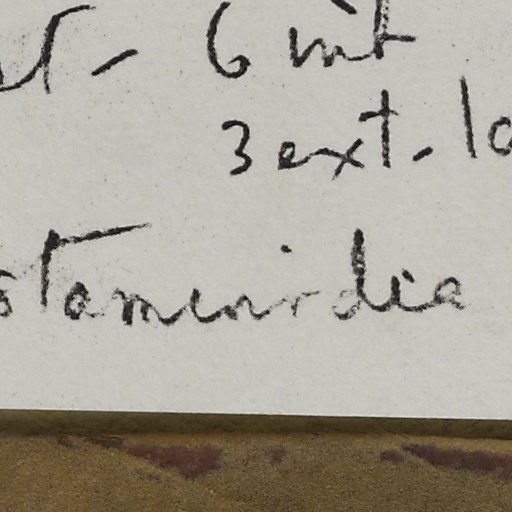 6 int
3 ext - la
staminodia